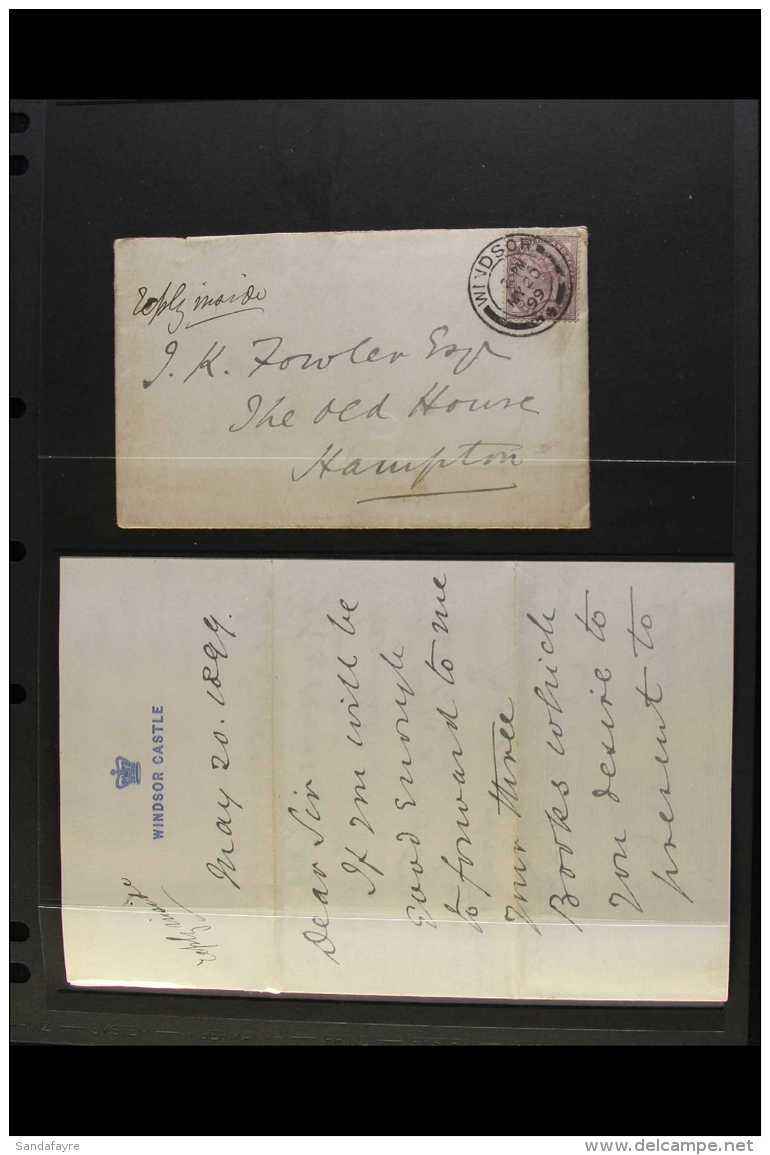 Reply inside
J. K. Fowler Esqr
The Old House
Hampton
WINDSOR
PM
MY 20
99
Reply inside
WINDSOR CASTLE
May 20. 1899.
Dear Sir
If you will be
good enough
to forward to me
your three
Books which
you desire to
present to
Sandafayre
delcampe.net